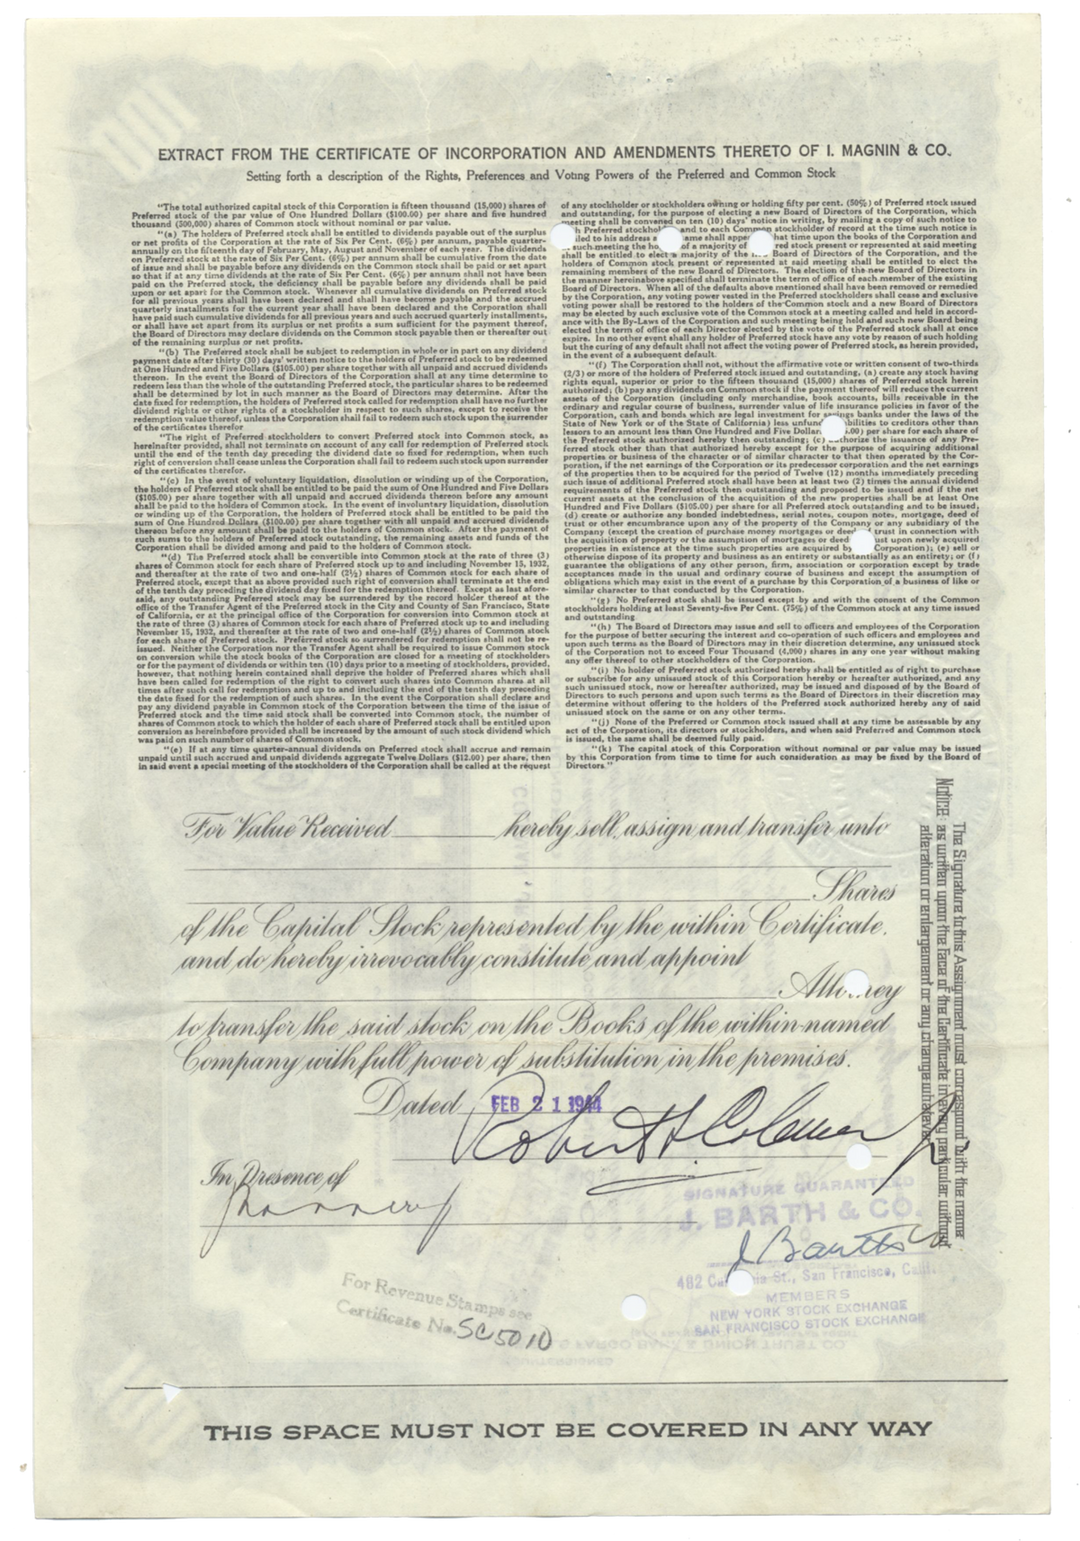 EXTRACT FROM THE CERTIFICATE OF INCORPORATION AND AMENDMENTS THERETO OF I. MAGNIN & CO.
Setting forth a description of the Rights, Preferences and Voting Powers of the Preferred and Common Stock
"The total authorized capital stock of this Corporation is fifteen thousand (15,000) shares of
Preferred stock of the par value of One Hundred Dollars ($100.00) per share and five hundred
thousand (500,000) shares of Common stock without nominal or par value.
"(a) The holders of Preferred stock shall be entitled to dividends payable out of the surplus
or net profits of the Corporation at the rate of Six Per Cent. (6%) per annum, payable quarter-
annually on the fifteenth day of February, May, August and November of each year. The dividends
on Preferred stock at the rate of Six Per Cent. (6%) per annum shall be cumulative from the date
of issue and shall be payable before any dividends on the Common stock shall be paid or set apart
so that if at any time dividends at the rate of Six Per Cent. (6%) per annum shall not have been
paid on the Preferred stock, the deficiency shall be payable before any dividends shall be paid
upon or set apart for the Common stock. Whenever all cumulative dividends on Preferred stock
for all previous years shall have been declared and shall have become payable and the accrued
quarterly installments for the current year shall have been declared and the Corporation shall
have paid such cumulative dividends for all previous years and such accrued quarterly installments,
or shall have set apart from its surplus or net profits a sum sufficient for the payment thereof,
the Board of Directors may declare dividends on the Common stock payable then or thereafter out
of the remaining surplus or net profits.
"(b) The Preferred stock shall be subject to redemption in whole or in part on any dividend
payment date after thirty (30) days' written notice to the holders of Preferred stock to be redeemed
at One Hundred and Five Dollars ($105.00) per share together with all unpaid and accrued dividends
thereon. In the event the Board of Directors shall at any time determine to
redeem less than the whole of the outstanding Preferred stock, the particular shares to be redeemed
shall be determined by lot in such manner as the Board of Directors may determine. After the
date fixed for redemption, the holders of Preferred stock called for redemption shall have no further
dividend rights or other rights of a stockholder in respect to such shares, except to receive the
redemption value thereof, unless the Corporation shall fail to redeem such stock upon the surrender
of the certificates therefor
"The right of Preferred stockholders to convert Preferred stock into Common stock, as
hereinafter provided, shall not terminate on account of any call for redemption of Preferred stock
until the end of the tenth day preceding the dividend date so fixed for redemption, when such
right of conversion shall cease unless the Corporation shall fail to redeem such stock upon surrender
of the certificates therefor.
"(c) In the event of voluntary liquidation, dissolution or winding up of the Corporation,
the holders of Preferred stock shall be entitled to be paid the sum of One Hundred and Five Dollars
($105.00) per share together with all unpaid and accrued dividends thereon before any amount
shall be paid to the holders of Common stock. In the event of involuntary liquidation, dissolution
or winding up of the Corporation, the holders of Preferred stock shall be entitled to be paid the
sum of One Hundred Dollars ($100.00) per share together with all unpaid and accrued dividends
thereon before any amount shall be paid to the holders of Common stock. After the payment of
such sums to the holders of Preferred stock outstanding, the remaining assets and funds of the
Corporation shall be divided among and paid to the holders of Common stock.
"(d) The Preferred stock shall be convertible into Common stock at the rate of three (3)
shares of Common stock for each share of Preferred stock up to and including November 15, 1932,
and thereafter at the rate of two and one-half (2½) shares of Common stock for each share of
Preferred stock, except that as above provided such right of conversion shall terminate at the end
of the tenth day preceding the dividend day fixed for the redemption thereof. Except as last afore-
said, any outstanding Preferred stock may be surrendered by the record holder thereof at the
office of the Transfer Agent of the Preferred stock in the City and County of San Francisco, State
of California, or at the principal office of the Corporation for conversion into Common stock at
the rate of three (3) shares of Common stock for each share of Preferred stock up to and including
November 15, 1932, and thereafter at the rate of two and one-half (2½) shares of Common stock
for each share of Preferred stock. Preferred stock so surrendered for redemption shall not be re-
issued. Neither the Corporation nor the Transfer Agent shall be required to issue Common stock
on conversion while the stock books of the Corporation are closed for a meeting of stockholders
or for the payment of dividends or within ten (10) days prior to a meeting of stockholders, provided,
however, that nothing herein contained shall deprive the holder of Preferred shares which shall
have been called for redemption of the right to convert such shares into Common shares at all
times after such call for redemption and up to and including the end of the tenth day preceding
the date fixed for the redemption of such shares. In the event the Corporation shall declare and
pay any dividend payable in Common stock of the Corporation between the time of the issue of
Preferred stock and the time said stock shall be converted into Common stock, the number of
shares of Common stock to which the holder of each share of Preferred stock shall be entitled upon
conversion as hereinbefore provided shall be increased by the amount of such stock dividend which
was paid on such number of shares of Common stock.
"(e) If at any time quarter-annual dividends on Preferred stock shall accrue and remain
unpaid until such accrued and unpaid dividends aggregate Twelve Dollars ($12.00) per share, then
in said event a special meeting of the stockholders of the Corporation shall be called at the request
of any stockholder or stockholders owning or holding fifty per cent. (50%) of Preferred stock issued
and outstanding, for the purpose of electing a new Board of Directors of the Corporation, which
meeting shall be convened on ten (10) days' notice in writing, by mailing a copy of such notice to
h Preferred stockho and to each Common stockholder of record at the time such notice is
iled to his address a same shall appe hat time upon the books of the Corporation and
such meeting the ho a majority of red stock present or represented at said meeting
shall be entitled to elect a majority of the Board of Directors of the Corporation, and the
holders of Common stock present or represented at said meeting shall be entitled to elect the
remaining members of the new Board of Directors. The election of the new Board of Directors in
the manner hereinabove specified shall terminate the term of office of each member of the existing
Board of Directors. When all of the defaults above mentioned shall have been removed or remedied
by the Corporation, any voting power vested in the Preferred stockholders shall cease and exclusive
voting power shall be restored to the holders of the Common stock and a new Board of Directors
may be elected by such exclusive vote of the Common stock at a meeting called and held in accord-
ance with the By-Laws of the Corporation and such meeting being held and such new Board being
elected the term of office of each Director elected by the vote of the Preferred stock shall at once
expire. In no other event shall any holder of Preferred stock have any vote by reason of such holding
but the curing of any default shall not affect the voting power of Preferred stock, as herein provided,
in the event of a subsequent default.
"(f) The Corporation shall not, without the affirmative vote or written consent of two-thirds
(2/3) or more of the holders of Preferred stock issued and outstanding, (a) create any stock having
rights equal, superior or prior to the fifteen thousand (15,000) shares of Preferred stock herein
authorized; (b) pay any dividends on Common stock if the payment thereof will reduce the current
assets of the Corporation (including only merchandise, book accounts, bills receivable in the
ordinary and regular course of business, surrender value of life insurance policies in favor of the
Corporation, cash and bonds which are legal investment for savings banks under the laws of the
State of New York or of the State of California) less unfun bilities to creditors other than
lessors to an amount less than One Hundred and Five Dollar .00) per share for each share of
the Preferred stock authorized hereby then outstanding; (c) authorize the issuance of any Pre-
ferred stock other than that authorized hereby except for the purpose of acquiring additional
properties or business of the character or of similar character to that then operated by the Cor-
poration, if the net earnings of the Corporation or its predecessor corporation and the net earnings
of the properties then to be acquired for the period of Twelve (12) months immediately preceding
such issue of additional Preferred stock shall have been at least two (2) times the annual dividend
requirements of the Preferred stock then outstanding and proposed to be issued and if the net
current assets at the conclusion of the acquisition of the new properties shall be at least One
Hundred and Five Dollars ($105.00) per share for all Preferred stock outstanding and to be issued,
(d) create or authorize any bonded indebtedness, serial notes, coupon notes, mortgage, deed of
trust or other encumbrance upon any of the property of the Company or any subsidiary of the
Company (except the creation of purchase money mortgages or deed trust in connection with
the acquisition of property or the assumption of mortgages or deed ust upon newly acquired
properties in existence at the time such properties are acquired by Corporation); (e) sell or
otherwise dispose of its property and business as an entirety or substantially as an entirety; or (f)
guarantee the obligations of any other person, firm, association or corporation except by trade
acceptances made in the usual and ordinary course of business and except the assumption of
obligations which may exist in the event of a purchase by this Corporation of a business of like or
similar character to that conducted by the Corporation.
"(g) No Preferred stock shall be issued except by and with the consent of the Common
stockholders holding at least Seventy-five Per Cent. (75%) of the Common stock at any time issued
and outstanding.
"(h) The Board of Directors may issue and sell to officers and employees of the Corporation
for the purpose of better securing the interest and co-operation of such officers and employees and
upon such terms as the Board of Directors may in their discretion determine, any unissued stock
of the Corporation not to exceed Four Thousand (4,000) shares in any one year without making
any offer thereof to other stockholders of the Corporation.
"(i) No holder of Preferred stock authorized hereby shall be entitled as of right to purchase
or subscribe for any unissued stock of this Corporation hereby or hereafter authorized, and any
such unissued stock, now or hereafter authorized, may be issued and disposed of by the Board of
Directors to such persons and upon such terms as the Board of Directors in their discretion may
determine without offering to the holders of the Preferred stock authorized hereby any of said
unissued stock on the same or on any other terms.
"(j) None of the Preferred or Common stock issued shall at any time be assessable by any
act of the Corporation, its directors or stockholders, and when said Preferred and Common stock
is issued, the same shall be deemed fully paid.
"(k) The capital stock of this Corporation without nominal or par value may be issued
by this Corporation from time to time for such consideration as may be fixed by the Board of
Directors."
For Value Received hereby sell, assign and transfer unto
Shares
of the Capital Stock represented by the within Certificate.
and do hereby irrevocably constitute and appoint
Attorney
to transfer the said stock on the Books of the within-named
Company with full power of substitution in the premises.
Dated FEB 21 1944
Robert H Coleman Jr
In Presence of
SIGNATURE GUARANTEED
J. BARTH & CO.
J Barth & Co
482 Ca ia St., San Francisco, Calif.
MEMBERS
NEW YORK STOCK EXCHANGE
SAN FRANCISCO STOCK EXCHANGE
For Revenue Stamps see
Certificate No. SC5010
Notice: The Signature to this Assignment must correspond with the name
as written upon the Face of the Certificate in every particular without
alteration or enlargement or any change whatever.
THIS SPACE MUST NOT BE COVERED IN ANY WAY